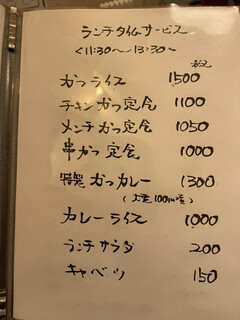 ランチタイムサービス
<11:30〜13:30>
税込
かつライス 1500
チキンかつ定食 1100
メンチかつ定食 1050
串かつ定食 1000
特製かつカレー 1300
カレーライス 1000
ランチサラダ 200
キャベツ 150